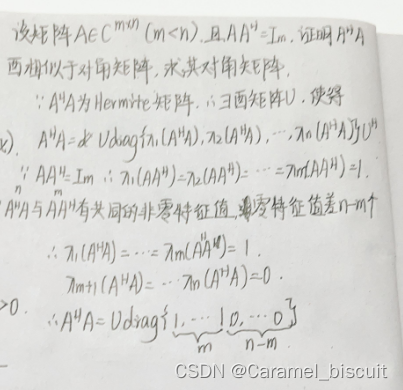 设矩阵A∈C^{m×n}(m<n),且AA^H=Im,证明A^HA
酉相似于对角矩阵,求其对角矩阵.
∵A^HA为Hermite矩阵,∴∃酉矩阵U,使得
x). A^HA=Udiag{λ1(A^HA),λ2(A^HA),…,λn(A^HA)}U^H
∵AA^H=Im ∴λ1(AA^H)=λ2(AA^H)=…=λm(AA^H)=1.
n m
A^HA与AA^H有共同的非零特征值,零特征值差n-m个
∴λ1(A^HA)=…=λm(A^HA)=1
λm+1(A^HA)=…λn(A^HA)=0.
>0. ∴A^HA=Udiag{1,…1 0,…0}
m n-m
CSDN @Caramel_biscuit